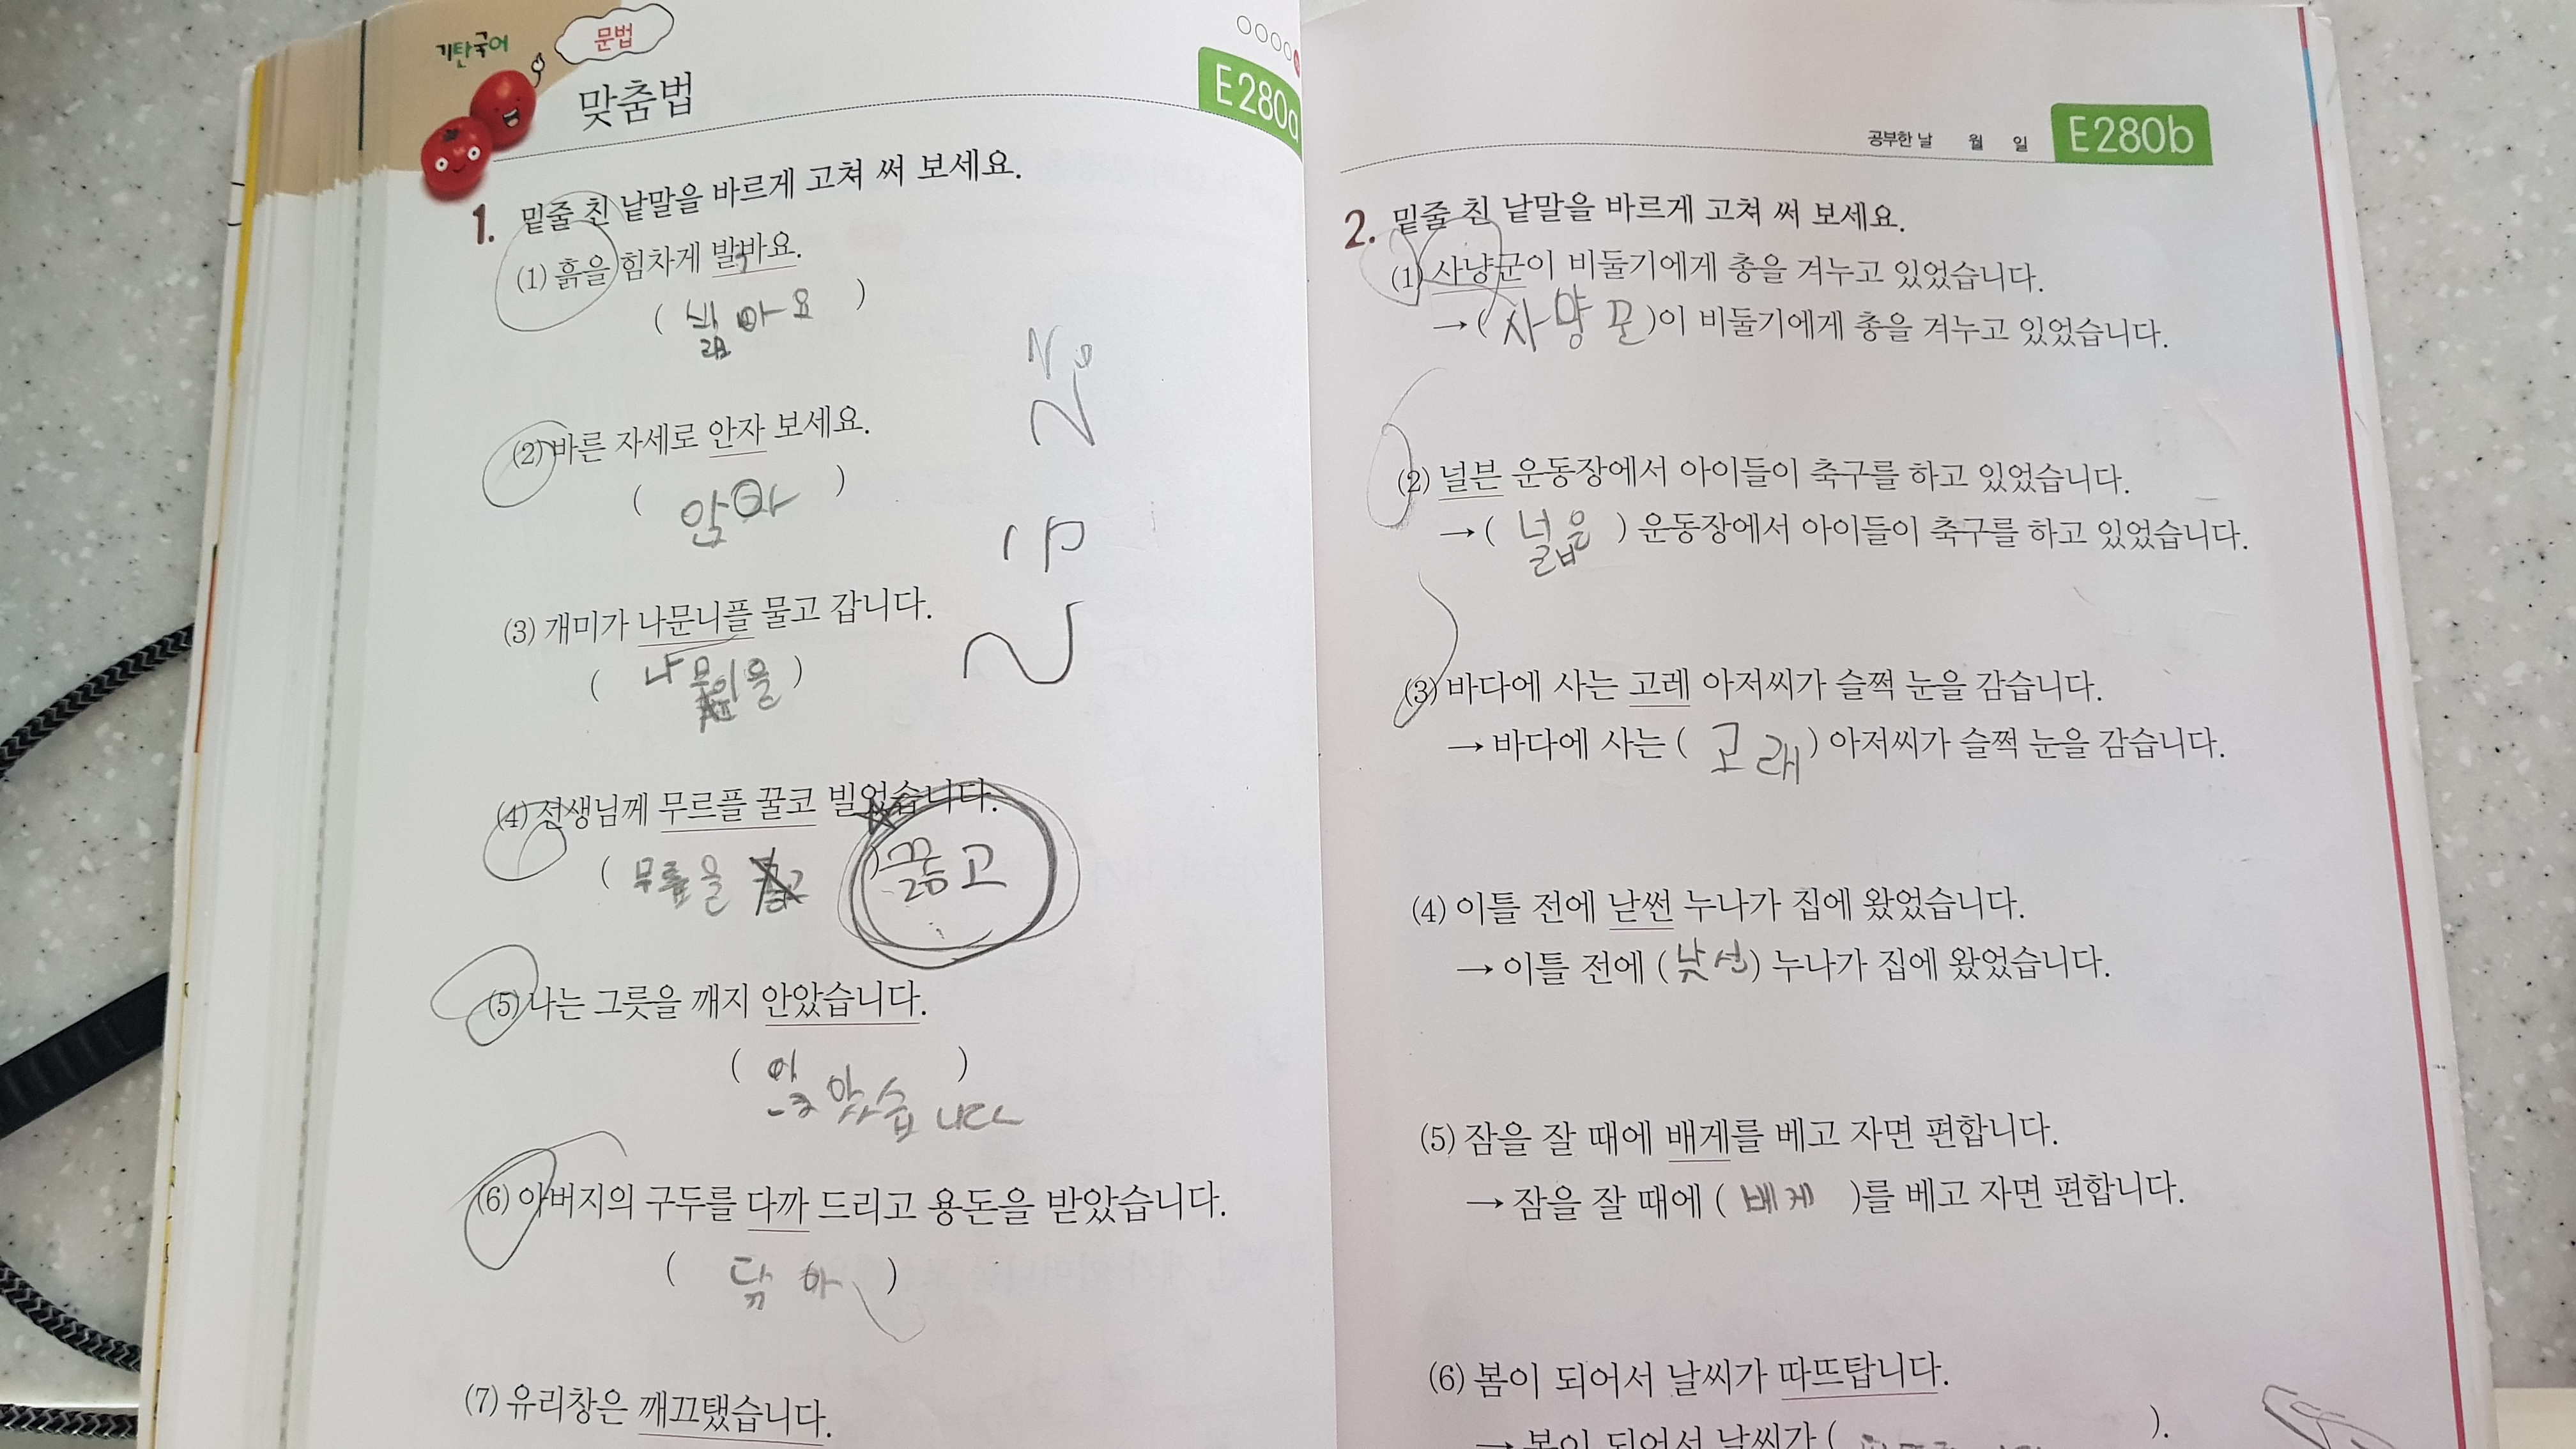 기탄국어
문법
맞춤법
E280a
1. 밑줄 친 낱말을 바르게 고쳐 써 보세요.
(1) 흙을 힘차게 발바요.
( 밟아요 )
(2) 바른 자세로 안자 보세요.
( 앉아 )
(3) 개미가 나문니플 물고 갑니다.
( 나뭇잎을 )
(4) 선생님께 무르플 꿀코 빌었습니다.
( 무릎을 ) 꿇고
(5) 나는 그릇을 깨지 안았습니다.
( 않았습니다 )
(6) 아버지의 구두를 다까 드리고 용돈을 받았습니다.
( 닦아 )
(7) 유리창은 깨끄탰습니다.
공부한 날 월 일 E280b
2. 밑줄 친 낱말을 바르게 고쳐 써 보세요.
(1) 사냥군이 비둘기에게 총을 겨누고 있었습니다.
→ ( 사냥꾼 )이 비둘기에게 총을 겨누고 있었습니다.
(2) 널븐 운동장에서 아이들이 축구를 하고 있었습니다.
→ ( 넓은 ) 운동장에서 아이들이 축구를 하고 있었습니다.
(3) 바다에 사는 고레 아저씨가 슬쩍 눈을 감습니다.
→ 바다에 사는 ( 고래 ) 아저씨가 슬쩍 눈을 감습니다.
(4) 이틀 전에 낟썬 누나가 집에 왔었습니다.
→ 이틀 전에 ( 낯선 ) 누나가 집에 왔었습니다.
(5) 잠을 잘 때에 배게를 베고 자면 편합니다.
→ 잠을 잘 때에 ( 베게 )를 베고 자면 편합니다.
(6) 봄이 되어서 날씨가 따뜨탑니다.
→ 봄이 되어서 날씨가 ( ).